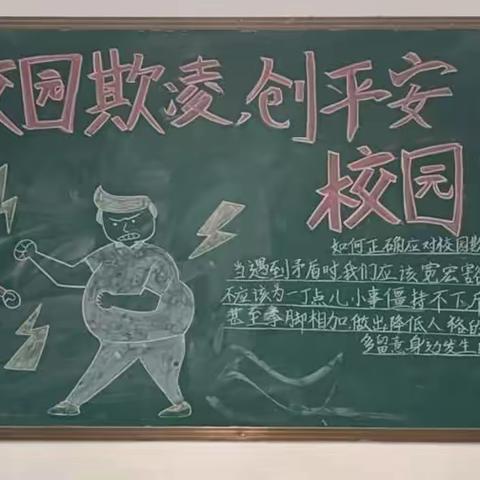 校园欺凌,创平安
校园
如何正确应对校园欺
当遇到矛盾时,我们应该宽宏
不应该为一丁点儿小事僵持不下
甚至拳脚相加做出降低人格的
多留意身边发生